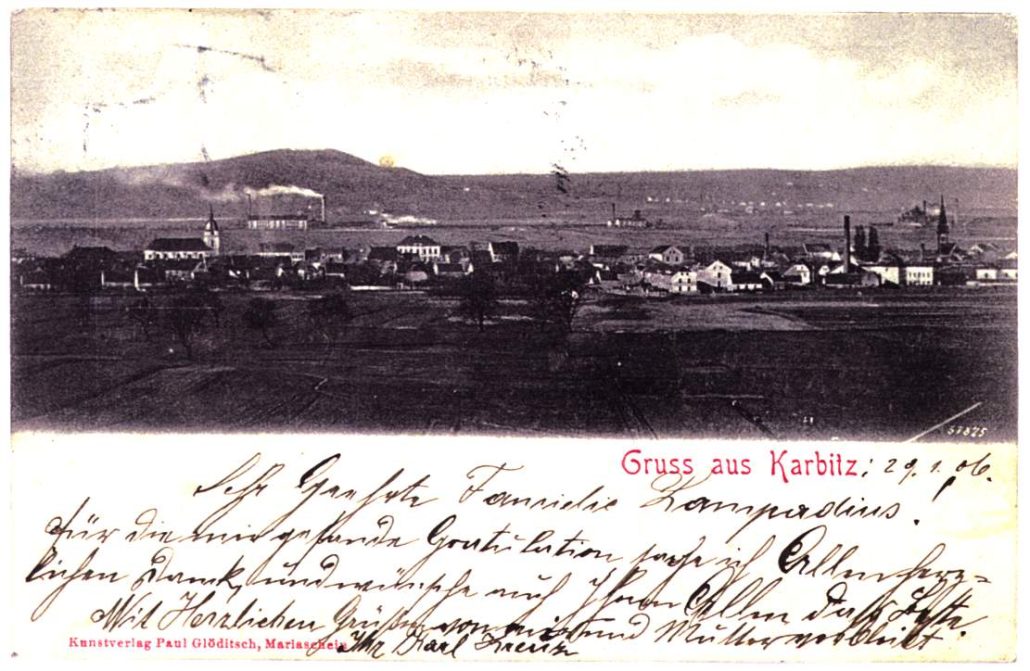 57875
Gruss aus Karbitz; 29.1.06.
Sehr Geehrte Familie Lampadius!
für die mir gesande Gratulation sage ich Allen herz=
lichen Dank, und wünsche auch Ihnen Allen das Beste.
Mit Herzlichen Grüßen von mir und Mutter verbleibt
Kunstverlag Paul Glöditsch, Mariaschein
Ihr Karl